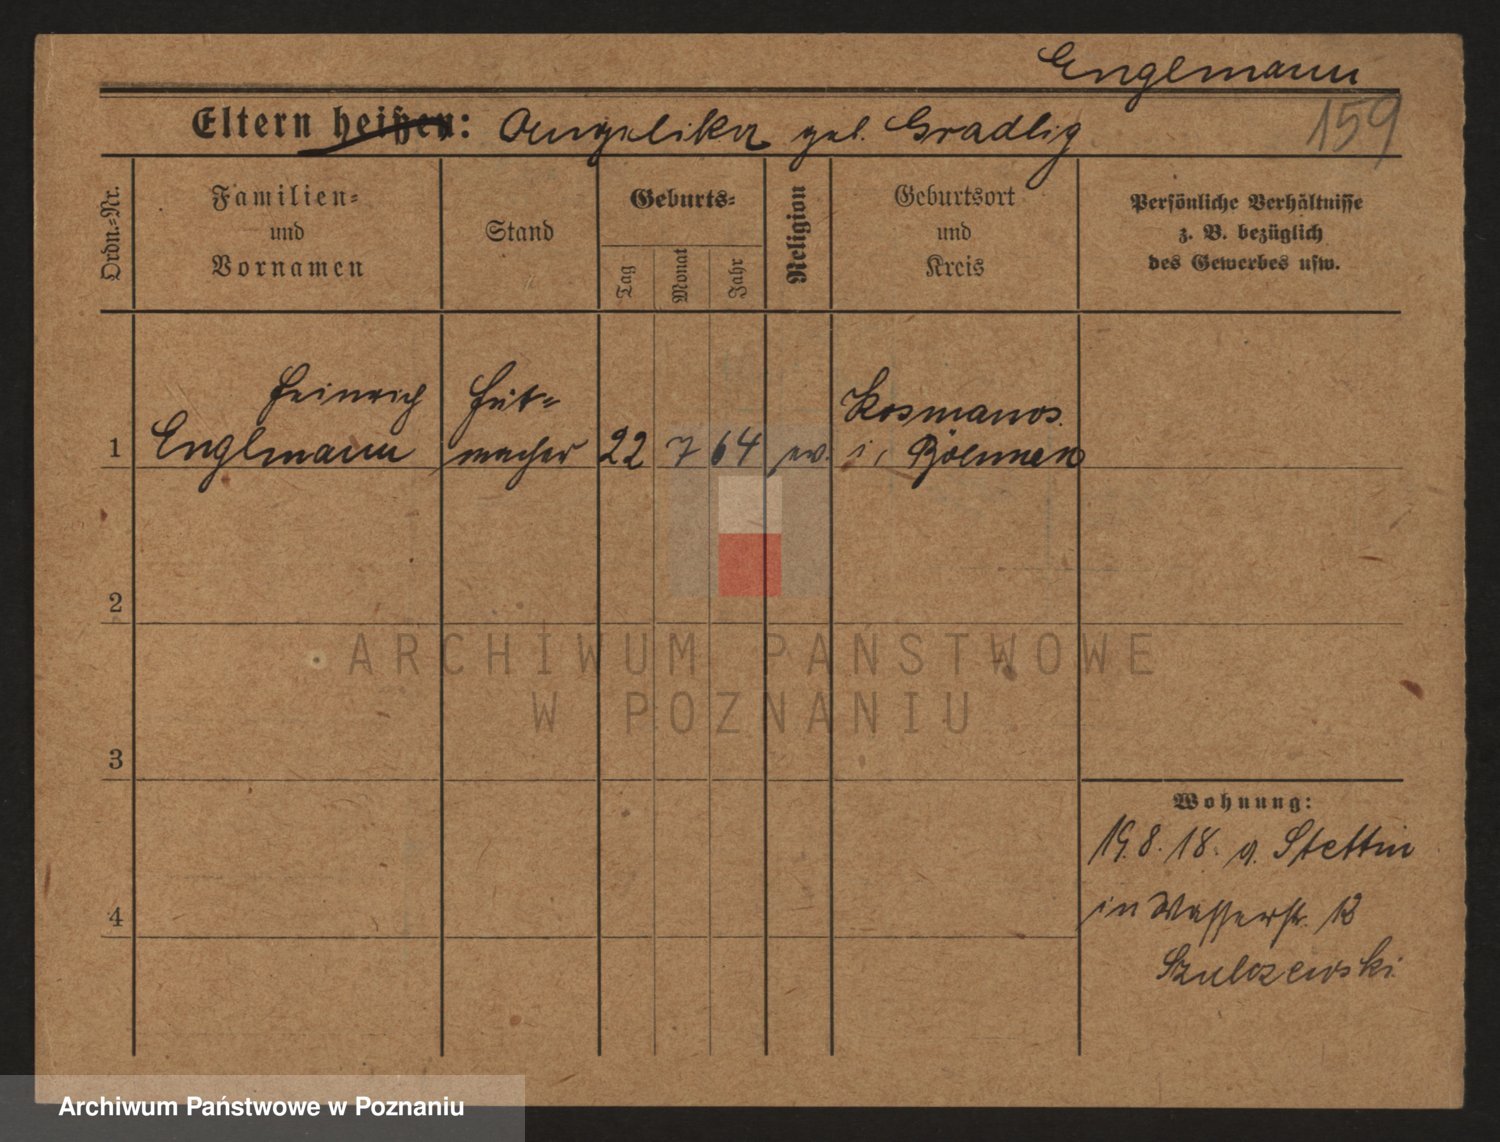 Englmann
Eltern heißen: Angelika geb. Gradlig
159
Ordn.-Nr.
Familien-
und
Vornamen
Stand
Geburts-
Tag
Monat
Jahr
Religion
Geburtsort
und
Kreis
Persönliche Verhältnisse
z. B. bezüglich
des Gewerbes usw.
Heinrich Hut- Kosmanos
1 Englmann macher 22 7 64 ev. i. Böhmen
2
ARCHIWUM PAŃSTWOWE
W POZNANIU
3
Wohnung:
19.8.18. v. Stettin
4
in Wasserstr. 13
Szulczewski
Archiwum Państwowe w Poznaniu